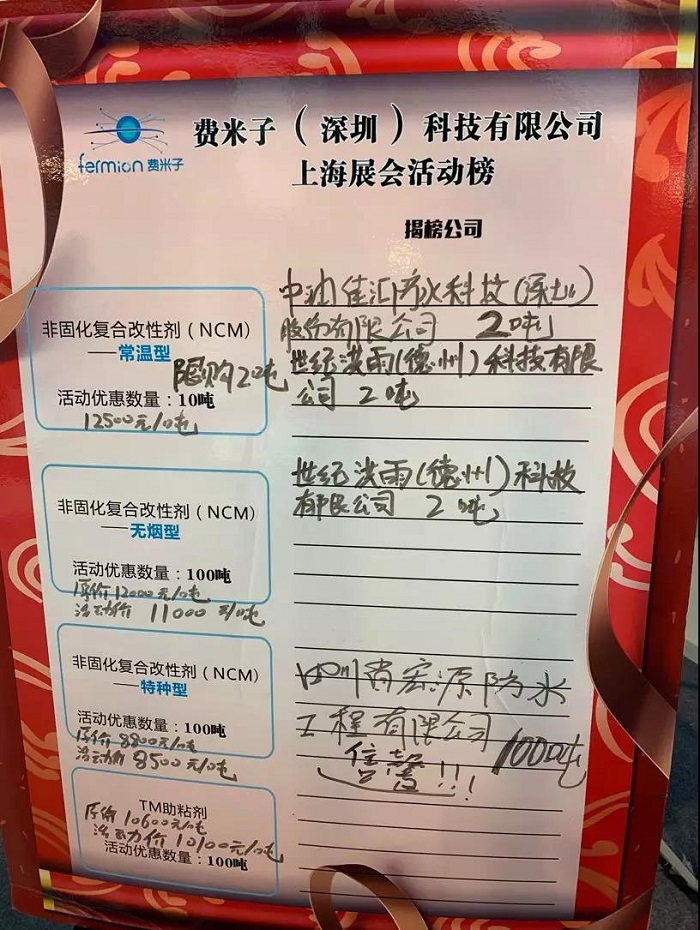 fermion 费米子
费米子（深圳）科技有限公司
上海展会活动榜
揭榜公司
非固化复合改性剂（NCM）
——常温型
限购20吨
活动优惠数量：10吨
12500元/吨
中油佳汇防水科技(深圳)
股份有限公司 2吨
世纪洪雨(德州)科技有限
公司 2吨
非固化复合改性剂（NCM）
——无烟型
活动优惠数量：100吨
原价12000元/吨
活动价 11000元/吨
世纪洪雨(德州)科技
有限公司 2吨
非固化复合改性剂（NCM）
——特种型
活动优惠数量：100吨
原价8800元/吨
活动价8500元/吨
四川省宏源防水
工程有限公司 100吨
售罄!!!
TM助粘剂
原价10600元/吨
活动价10100元/吨
活动优惠数量：100吨